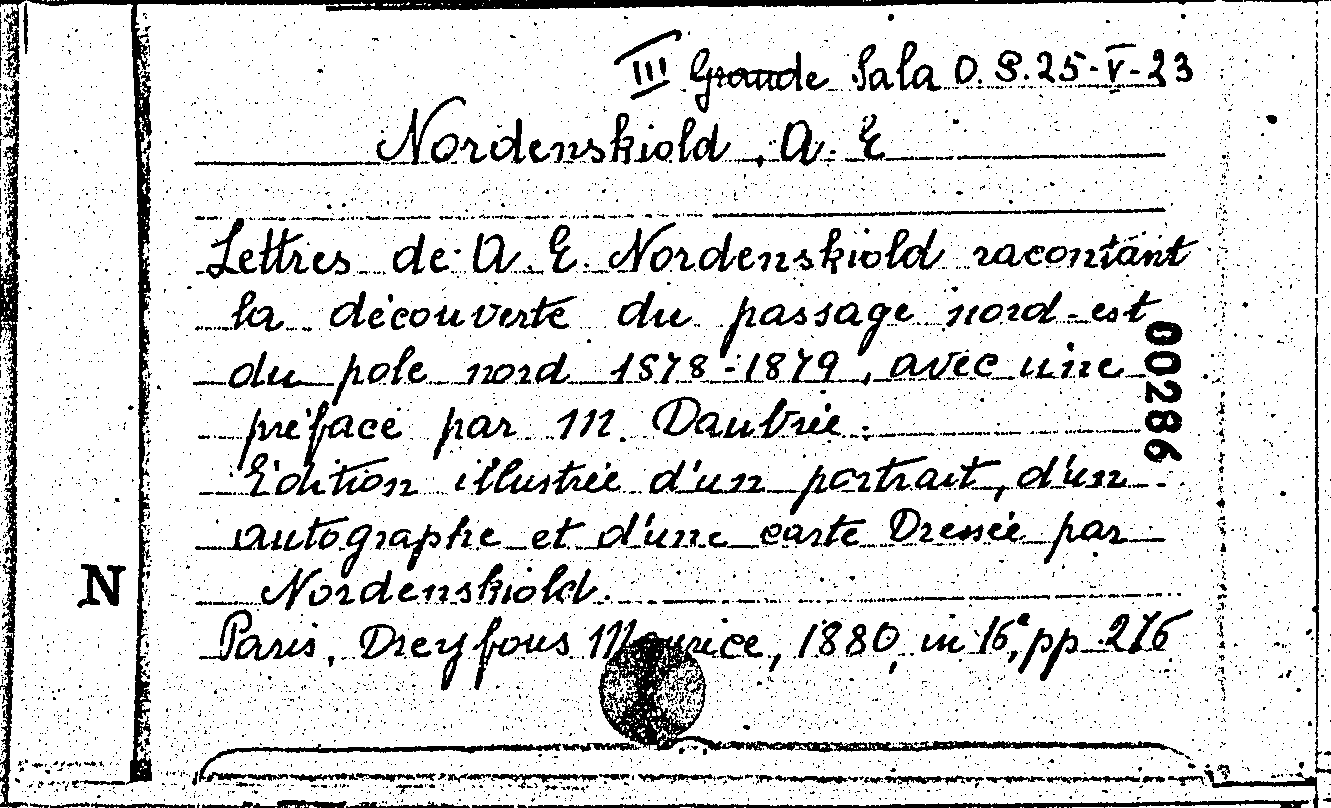 III Grande Sala O. S. 25-V-23
Nordenskiold, A. E
Lettres de A. E. Nordenskiold racontant
la découverte du passage nord-est
du pole nord 1878-1879, avec une
préface par M. Daubrée.
Edition illustrée d'un portrait, d'un
autographe et d'une carte Dressée par
Nordenskiold.
Paris, Dreyfous Maurice, 1880, in 16°, pp 276
00286
N